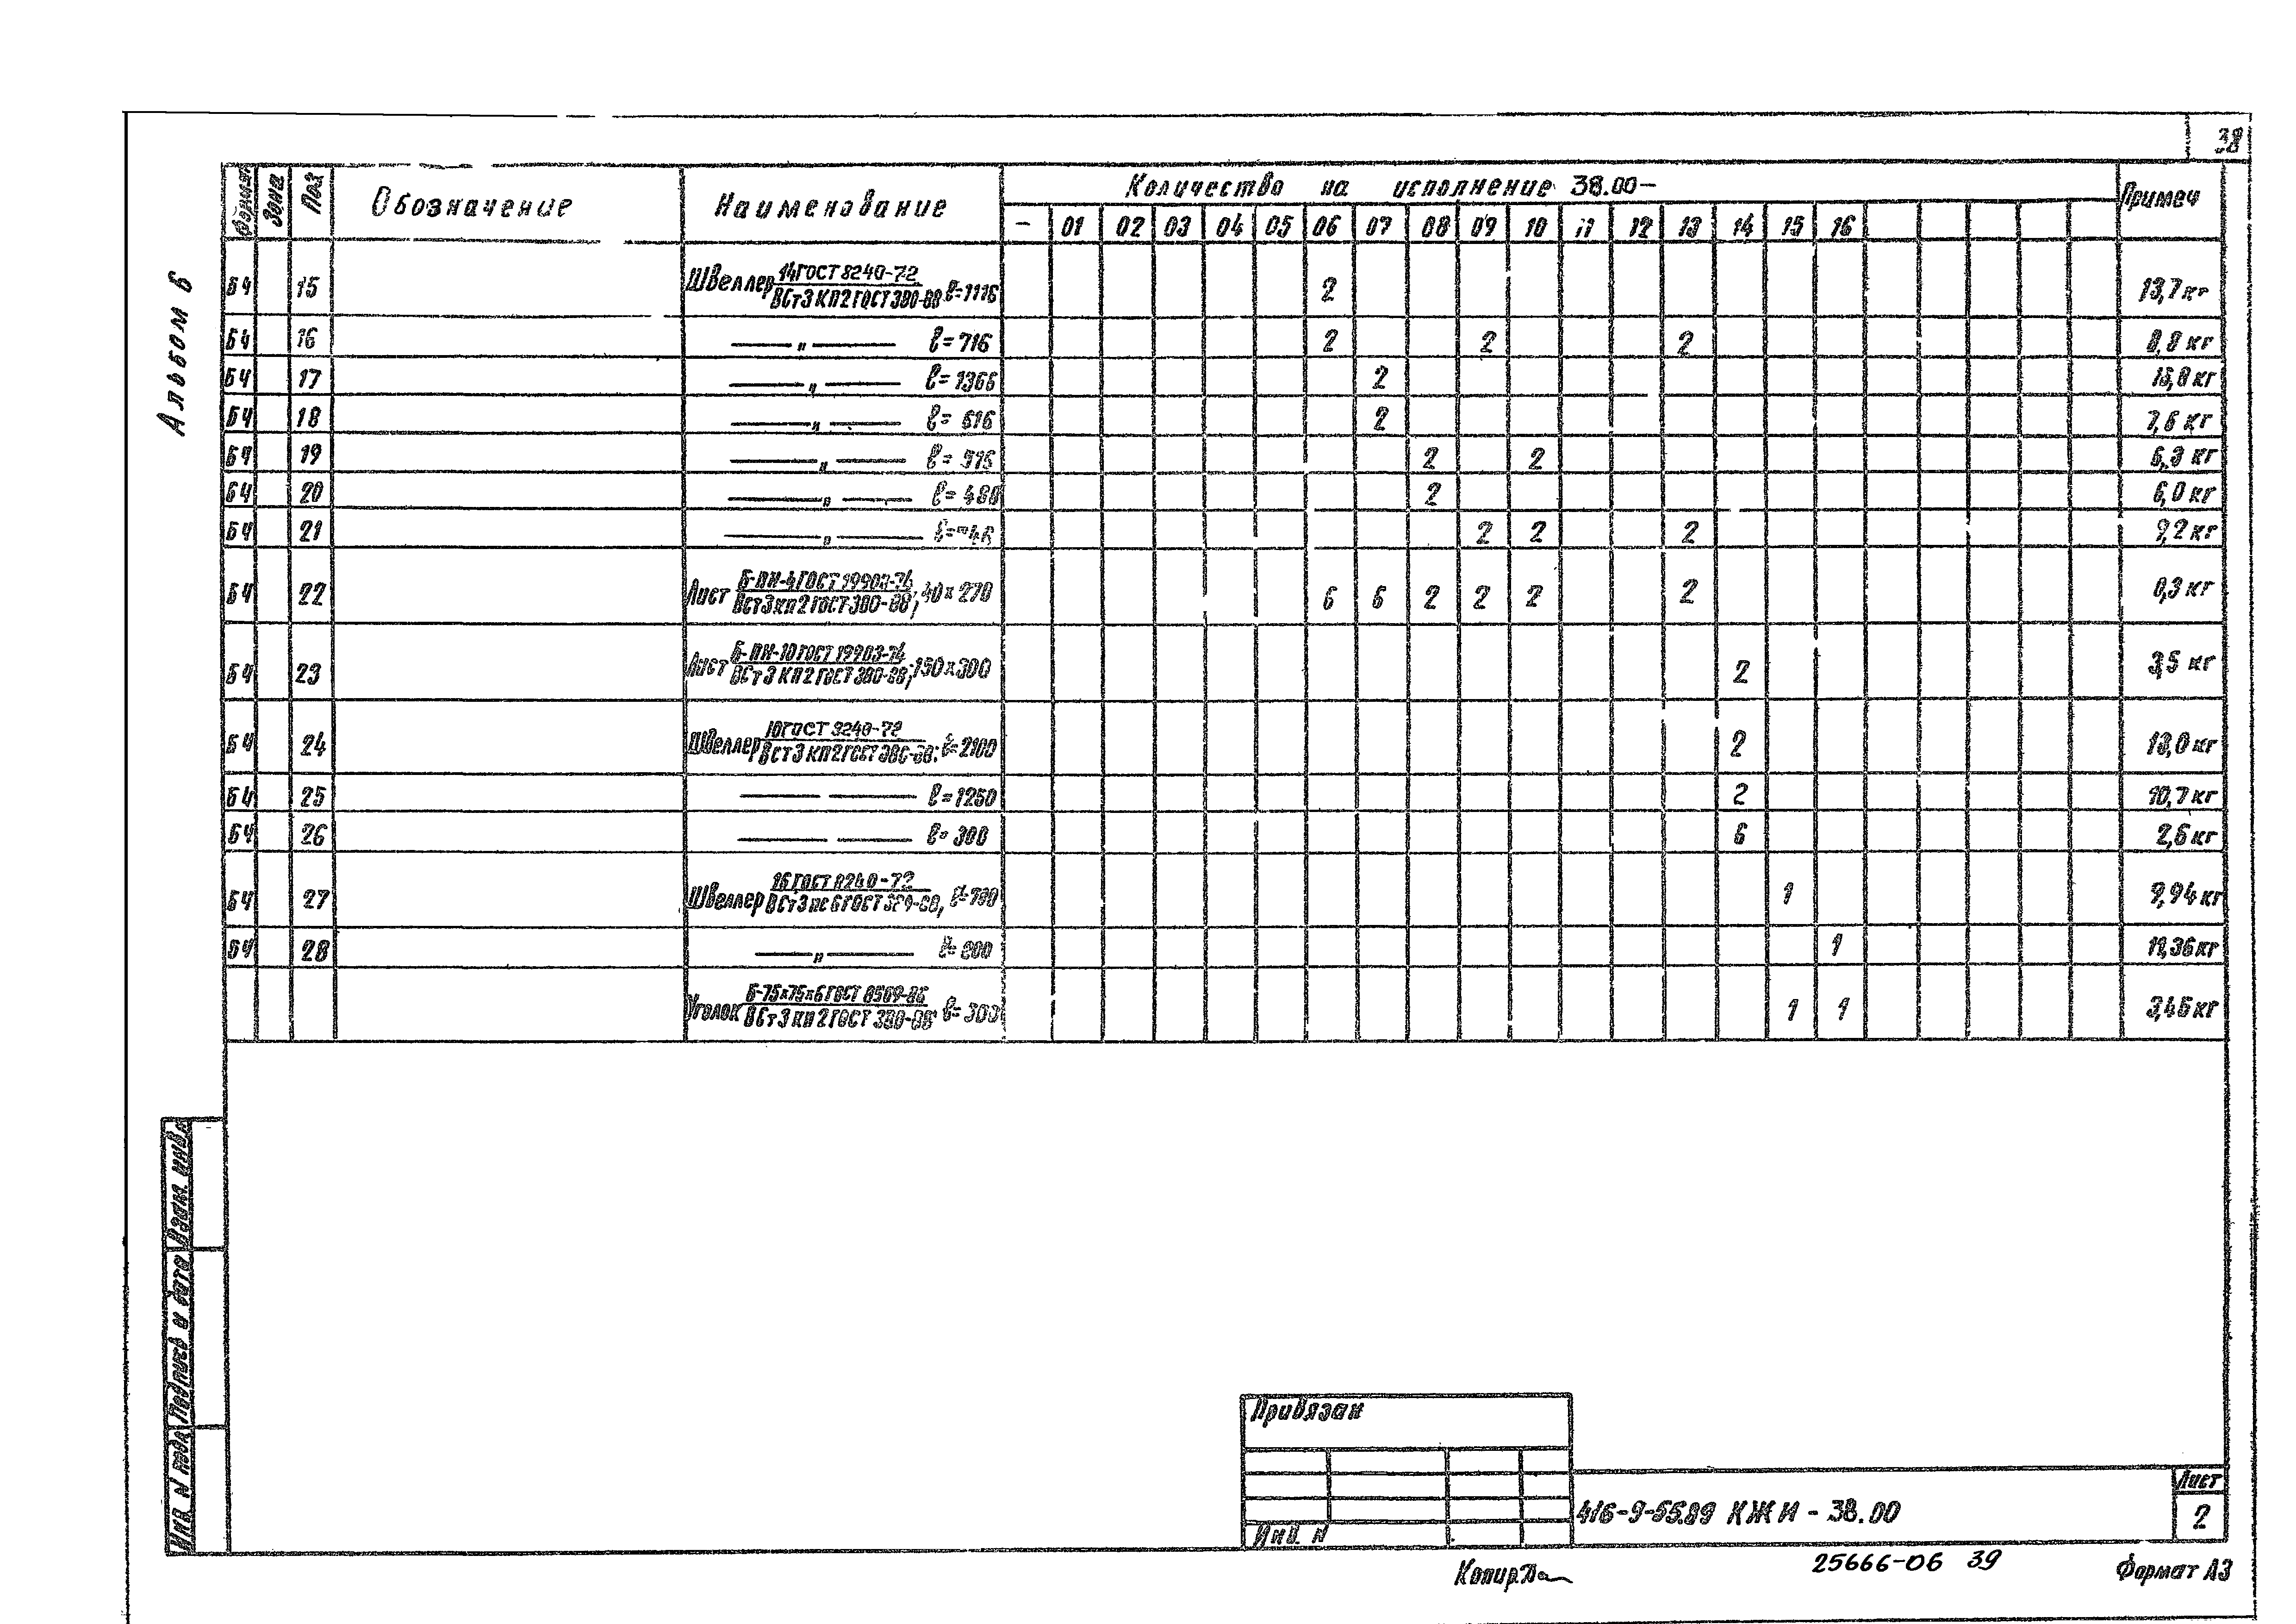 38
Альбом 6
Формат Зона Поз Обозначение Наименование Количество на исполнение 38.00— Примеч
— 01 02 03 04 05 06 07 08 09 10 11 12 13 14 15 16
БЧ 15 Швеллер 14 ГОСТ 8240-72 / ВСт3КП2 ГОСТ 380-88 ℓ=1116 2 13,7 кг
БЧ 16 —〃— ℓ=716 2 2 2 8,8 кг
БЧ 17 —〃— ℓ=1366 2 16,8 кг
БЧ 18 —〃— ℓ=616 2 7,6 кг
БЧ 19 —〃— ℓ= 2 2 6,3 кг
БЧ 20 —〃— ℓ=480 2 6,0 кг
БЧ 21 —〃— 2 2 2 9,2 кг
БЧ 22 Лист Б-ПН-4 ГОСТ 19903-74 / ВСт3кп2 ГОСТ 380-88; 40×270 6 6 2 2 2 2 0,3 кг
БЧ 23 Лист Б-ПН-10 ГОСТ 19903-74 / ВСт3КП2 ГОСТ 380-88; 150×300 2 3,5 кг
БЧ 24 Швеллер 10 ГОСТ 8240-72 / ВСт3КП2 ГОСТ 380-88; 2 18,0 кг
БЧ 25 — — ℓ=1250 2 10,7 кг
БЧ 26 — — ℓ=300 6 2,6 кг
БЧ 27 Швеллер 16 ГОСТ 8240-72 / ВСт3пс6 ГОСТ 380-88, ℓ=700 1 9,94 кг
БЧ 28 —〃— ℓ=800 1 11,36 кг
Уголок Б-75×75×6 ГОСТ 8509-86 / ВСт3кп2 ГОСТ 380-88 ℓ=300 1 1 3,45 кг
Взам. инв.
Подпись и дата
Инв. N подл.
Привязан
Инв. N
416-9-55.89 КЖИ - 38.00
Лист
2
Копир.
25666-06 39
Формат А3